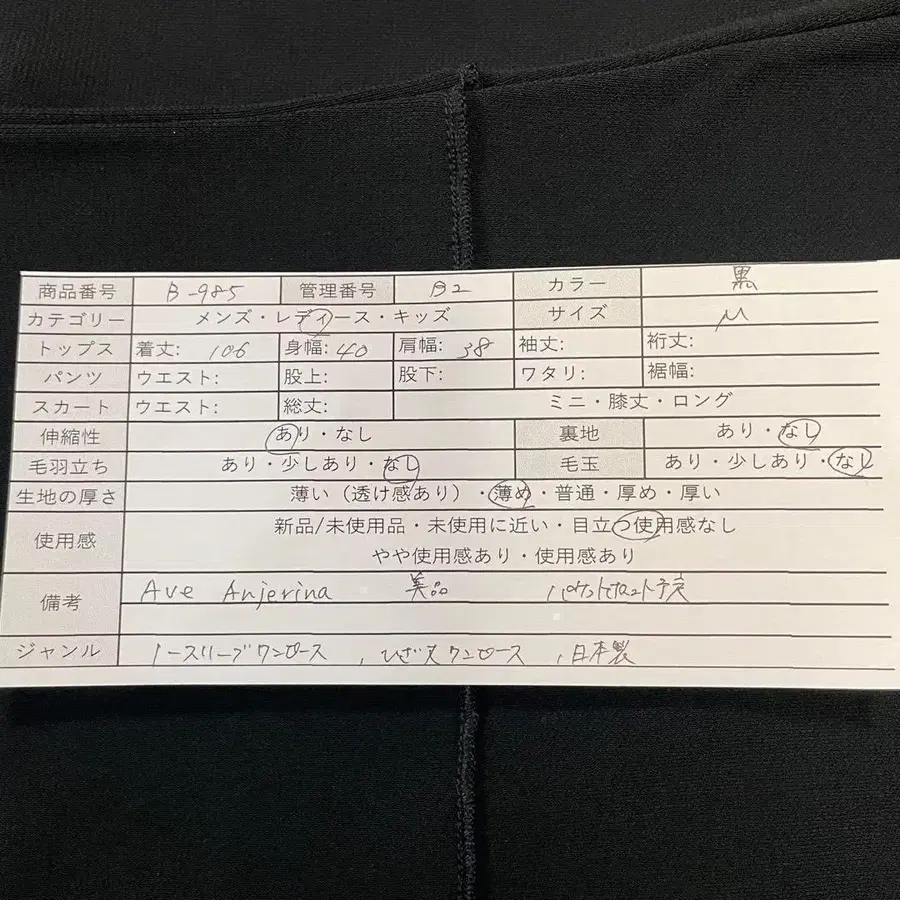 商品番号 B-985 管理番号 B2 カラー 黒
カテゴリー メンズ・レディース・キッズ サイズ M
トップス 着丈: 106 身幅: 40 肩幅: 38 袖丈: 裄丈:
パンツ ウエスト: 股上: 股下: ワタリ: 裾幅:
スカート ウエスト: 総丈: ミニ・膝丈・ロング
伸縮性 あり・なし 裏地 あり・なし
毛羽立ち あり・少しあり・なし 毛玉 あり・少しあり・なし
生地の厚さ 薄い（透け感あり）・薄め・普通・厚め・厚い
使用感 新品/未使用品・未使用に近い・目立つ使用感なし
やや使用感あり・使用感あり
備考 Ave Anjerina 美品
ジャンル ノースリーブワンピース , ひざ丈ワンピース , 日本製